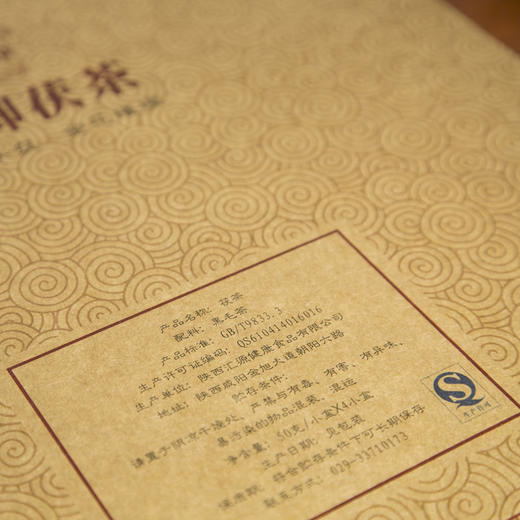 御茯茶
产品名称：茯茶
配料：黑毛茶
产品标准：GB/T9833.3
生产许可证编码：QS610414016016
生产单位：陕西汇源健康食品有限公司
地址：陕西咸阳金旭大道朝阳六路
贮存条件：
请置于阴凉干燥处，严禁与有毒、有害、有异味、
易污染的物品混装、混运
净含量：50克/小盒X4小盒
生产日期：见包装
保质期：符合贮存条件下可长期保存
联系方式：029-33710173